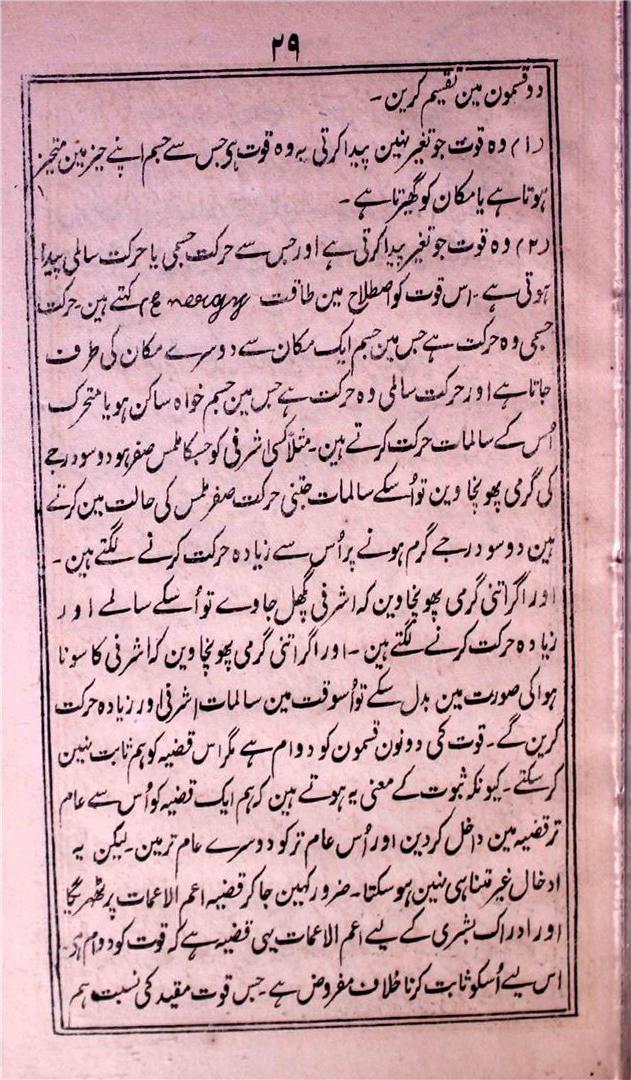 ۲۹
دو قسمون مین تقسیم کرین۔
(۱) وہ قوت جو تغیر نہین پیدا کرتی یہ وہ قوت ہی جس سے جسم اپنے حیز مین متحیز
ہوتا ہے یا مکان کو گھیرتا ہے۔
(۲) وہ قوت جو تغیر پیدا کرتی ہے اور جس سے حرکت جسمی یا حرکت سالمی پیدا
ہوتی ہے۔ اس قوت کو اصطلاح مین طاقت Energy کہتے ہین۔ حرکت
جسمی وہ حرکت ہے جس مین جسم ایک مکان سے دوسرے مکان کی طرف
جاتا ہے اور حرکت سالمی وہ حرکت ہے جس مین جسم خواہ ساکن ہو یا متحرک
اُس کے سالمات حرکت کرتے ہین۔ مثلاً کسی اشرفی کو جسکا ٹمس صفر ہو دوسو درجے
کی گرمی پہونچاوین تو اُسکے سالمات جتنی حرکت صفر ٹمس کی حالت مین کرتے
ہین دوسو درجے گرم ہونے پر اُس سے زیادہ حرکت کرنے لگتے ہین۔
اور اگر اتنی گرمی پہونچاوین کہ اشرفی پگھل جاوے تو اُسکے سالمے اور
زیادہ حرکت کرنے لگتے ہین۔ اور اگر اتنی گرمی پہونچاوین کہ اشرفی کا سونا
ہوا کی صورت مین بدل سکے تو اُسوقت مین سالمات اشرفی اور زیادہ حرکت
کرین گے۔ قوت کی دونون قسمون کو دوام ہے مگر اس قضیہ کو ہم ثابت نہین
کرسکتے۔ کیونکہ ثبوت کے معنی یہ ہوتے ہین کہ ہم ایک قضیہ کو اُس سے عام
تر قضیہ مین داخل کردین اور اُس عام تر کو دوسرے عام تر مین۔ لیکن یہ
ادخال غیر متناہی نہین ہوسکتا۔ ضرور کہین جاکر قضیہ اعم الاعمات پر ٹھہریگا
اور ادراک بشری کے لیے اعم الاعمات یہی قضیہ ہے کہ قوت کو دوام ہی۔
اس لیے اُسکو ثابت کرنا خلاف مفروض ہے۔ جس قوت مقید کی نسبت ہم